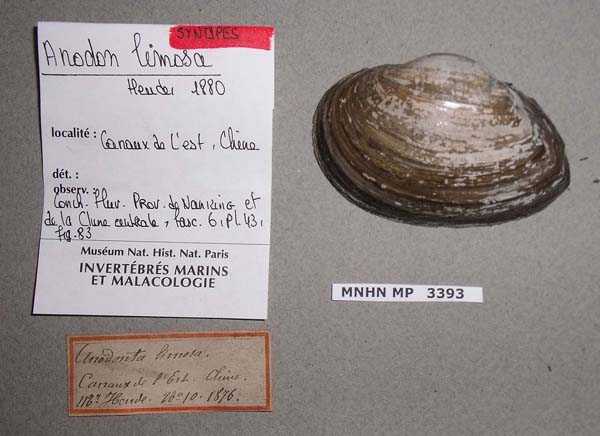 SYNTYPES
Anodon limosa
Heude 1880
localité : Canaux de l'est, Chine
dét. :
observ. :
Conch. Fluv. Prov. de Nanking et
de la Chine centrale, fasc. 6, Pl. 43,
fig. 83
Muséum Nat. Hist. Nat. Paris
INVERTÉBRÉS MARINS
ET MALACOLOGIE
MNHN MP 3393
Anodonta limosa.
Canaux de l'Est. Chine.
Heude. 10. 1876.